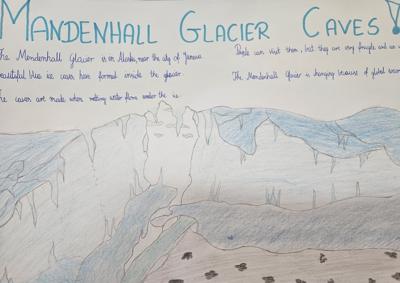 MANDENHALL GLACIER CAVES
The Mendenhall Glacier is in Alaska, near the city of Juneau
beautiful blue ice caves have formed inside the glacier
The caves are made when melting water flows under the ice
People can visit them, but they are very fragile and can
The Mendenhall Glacier is changing because of global